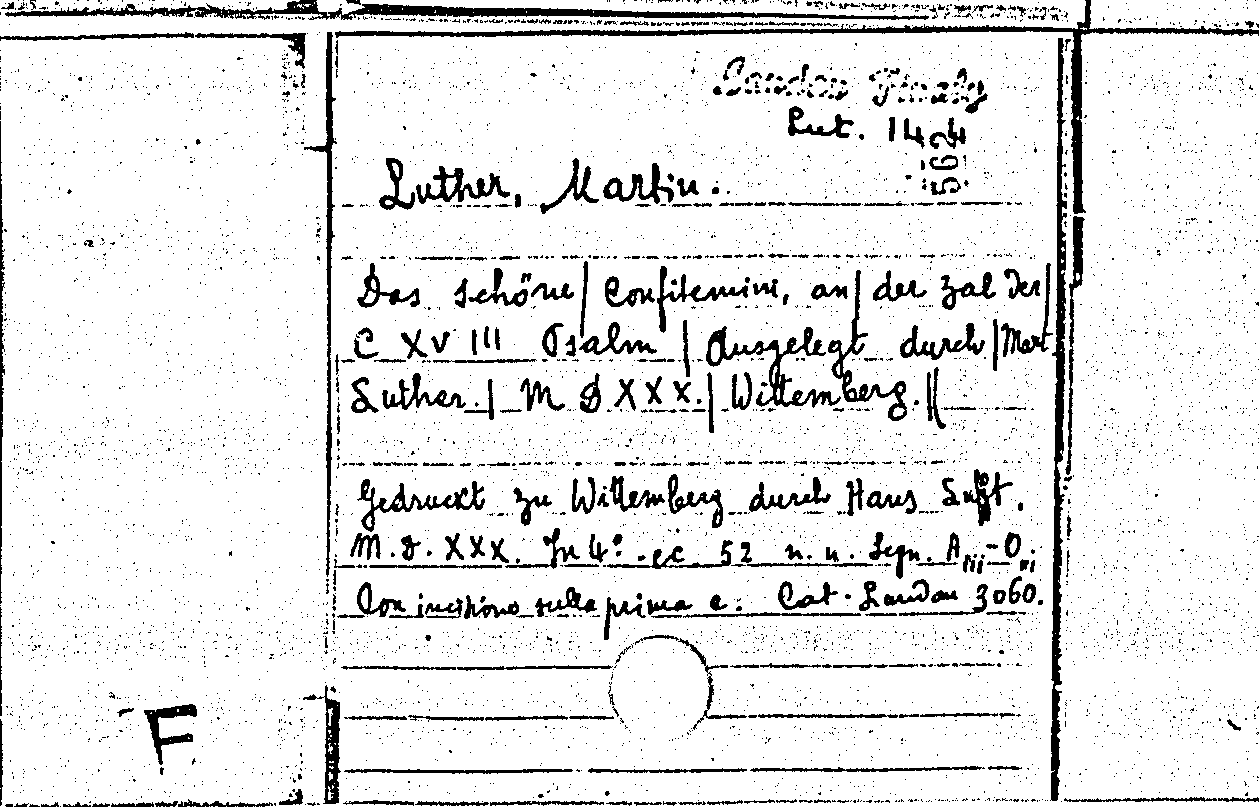 Landau Finaly
Lut. 144
5624
Luther, Martin.
Das schöne | Confitemini, an | der zal der |
C XVIII Psalm | Ausgelegt durch | Mart.
Luther. | M D XXX. | Wittemberg. ||
Gedruckt zu Wittemberg durch Hans Lufft.
M.D.XXX. In 4°. cc. 52 n. n. Segn. Aiii-Oiii
Con incisione sulla prima c. Cat. Landau 3060.
F